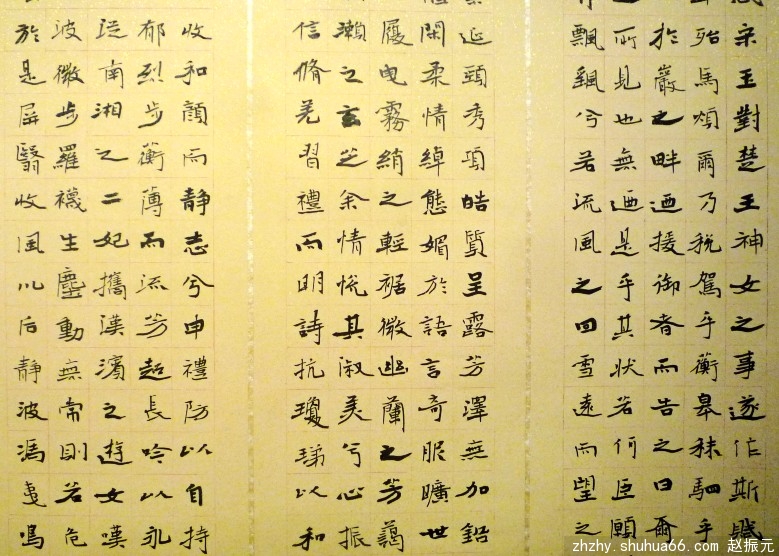 宋王對楚王神女之事遂作斯賦
殆馬煩爾乃税駕乎衡皋秣駟乎
於巖之畔迺援御者而告之曰爾
所見也無迺是乎其狀若何臣願
飄颻兮若流風之回雪遠而望之
延頸秀項皓質呈露芳澤無加鉛
閑柔情綽態媚於語言奇服曠世
履曳霧綃之輕裾微幽蘭之芳藹
瀨之玄芝余情悅其淑美兮心振
信脩羌習禮而明詩抗瓊珶以和
收和顏而静志兮申禮防以自持
郁烈步衡薄而流芳超長吟以永
從南湘之二妃攜漢濱之遊女嘆
波微步羅襪生塵動無常則若危
於是屏翳收風川后静波馮夷鳴
zhzhy.shuhua66.com 赵振元